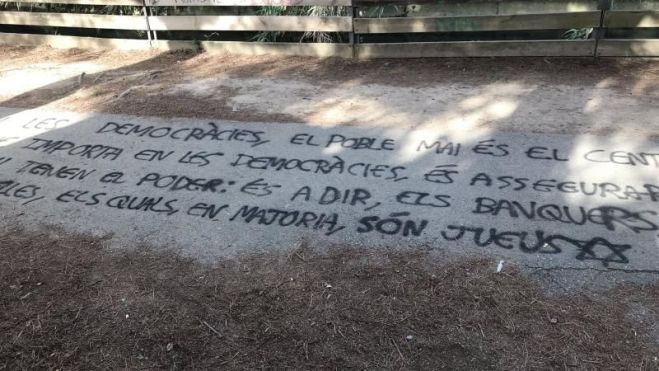 LES DEMOCRÀCIES, EL POBLE MAI ÉS EL CENT
IMPORTA EN LES DEMOCRÀCIES, ES ASSEGURAR
TENEN EL PODER: ÉS A DIR, ELS BANQUERS
ELS QUALS, EN MAJORIA, SÓN JUEUS